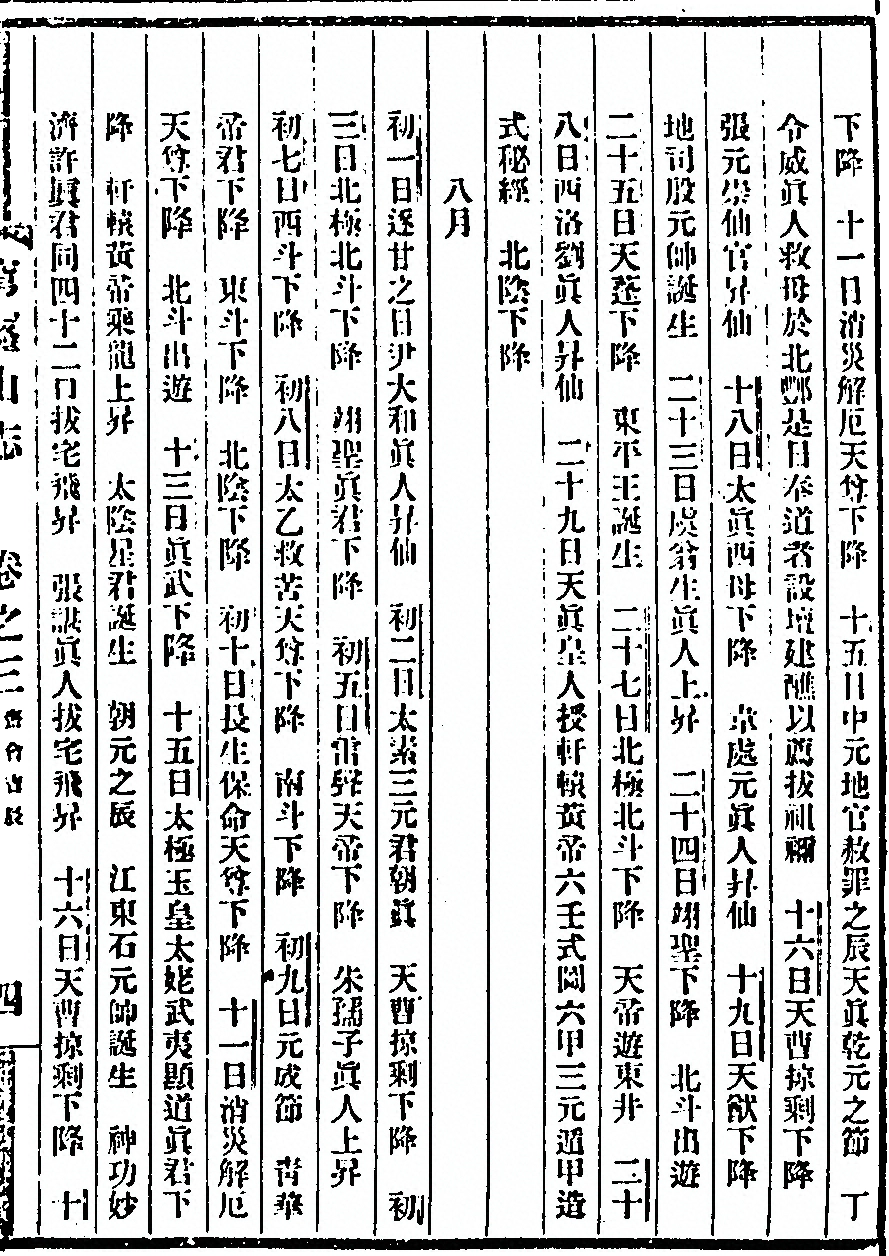 下降　十一日消災解厄天尊下降　十五日中元地官赦罪之辰天眞乾元之節　丁
令威眞人救母於北酆是日奉道者設壇建醮以薦拔祖禰　十六日天曹掠剩下降
張元崇仙官昇仙　十八日太眞西母下降　韋處元眞人昇仙　十九日天猷下降
地司殷元帥誕生　二十三日虞翁生眞人上昇　二十四日翊聖下降　北斗出遊
二十五日天蓬下降　東平王誕生　二十七日北極北斗下降　天帝遊東井　二十
八日西洛劉眞人昇仙　二十九日天眞皇人授軒轅黃帝六壬式圖六甲三元遁甲造
式秘經　北陰下降
八月
初一日逐甘之日尹大和眞人昇仙　初二日太素三元君朝眞　天曹掠剩下降　初
三日北極北斗下降　翊聖眞君下降　初五日雷聲天帝下降　朱孺子眞人上昇
初七日西斗下降　初八日太乙救苦天尊下降　南斗下降　初九日元成節　靑華
帝君下降　東斗下降　北陰下降　初十日長生保命天尊下降　十一日消災解厄
天尊下降　北斗出遊　十三日眞武下降　十五日太極玉皇太姥武夷顯道眞君下
降　軒轅黃帝乘龍上昇　太陰星君誕生　朝元之辰　江東石元帥誕生　神功妙
濟許眞君同四十二口拔宅飛昇　張諶眞人拔宅飛昇　十六日天曹掠剩下降　十
山志　卷之三　四